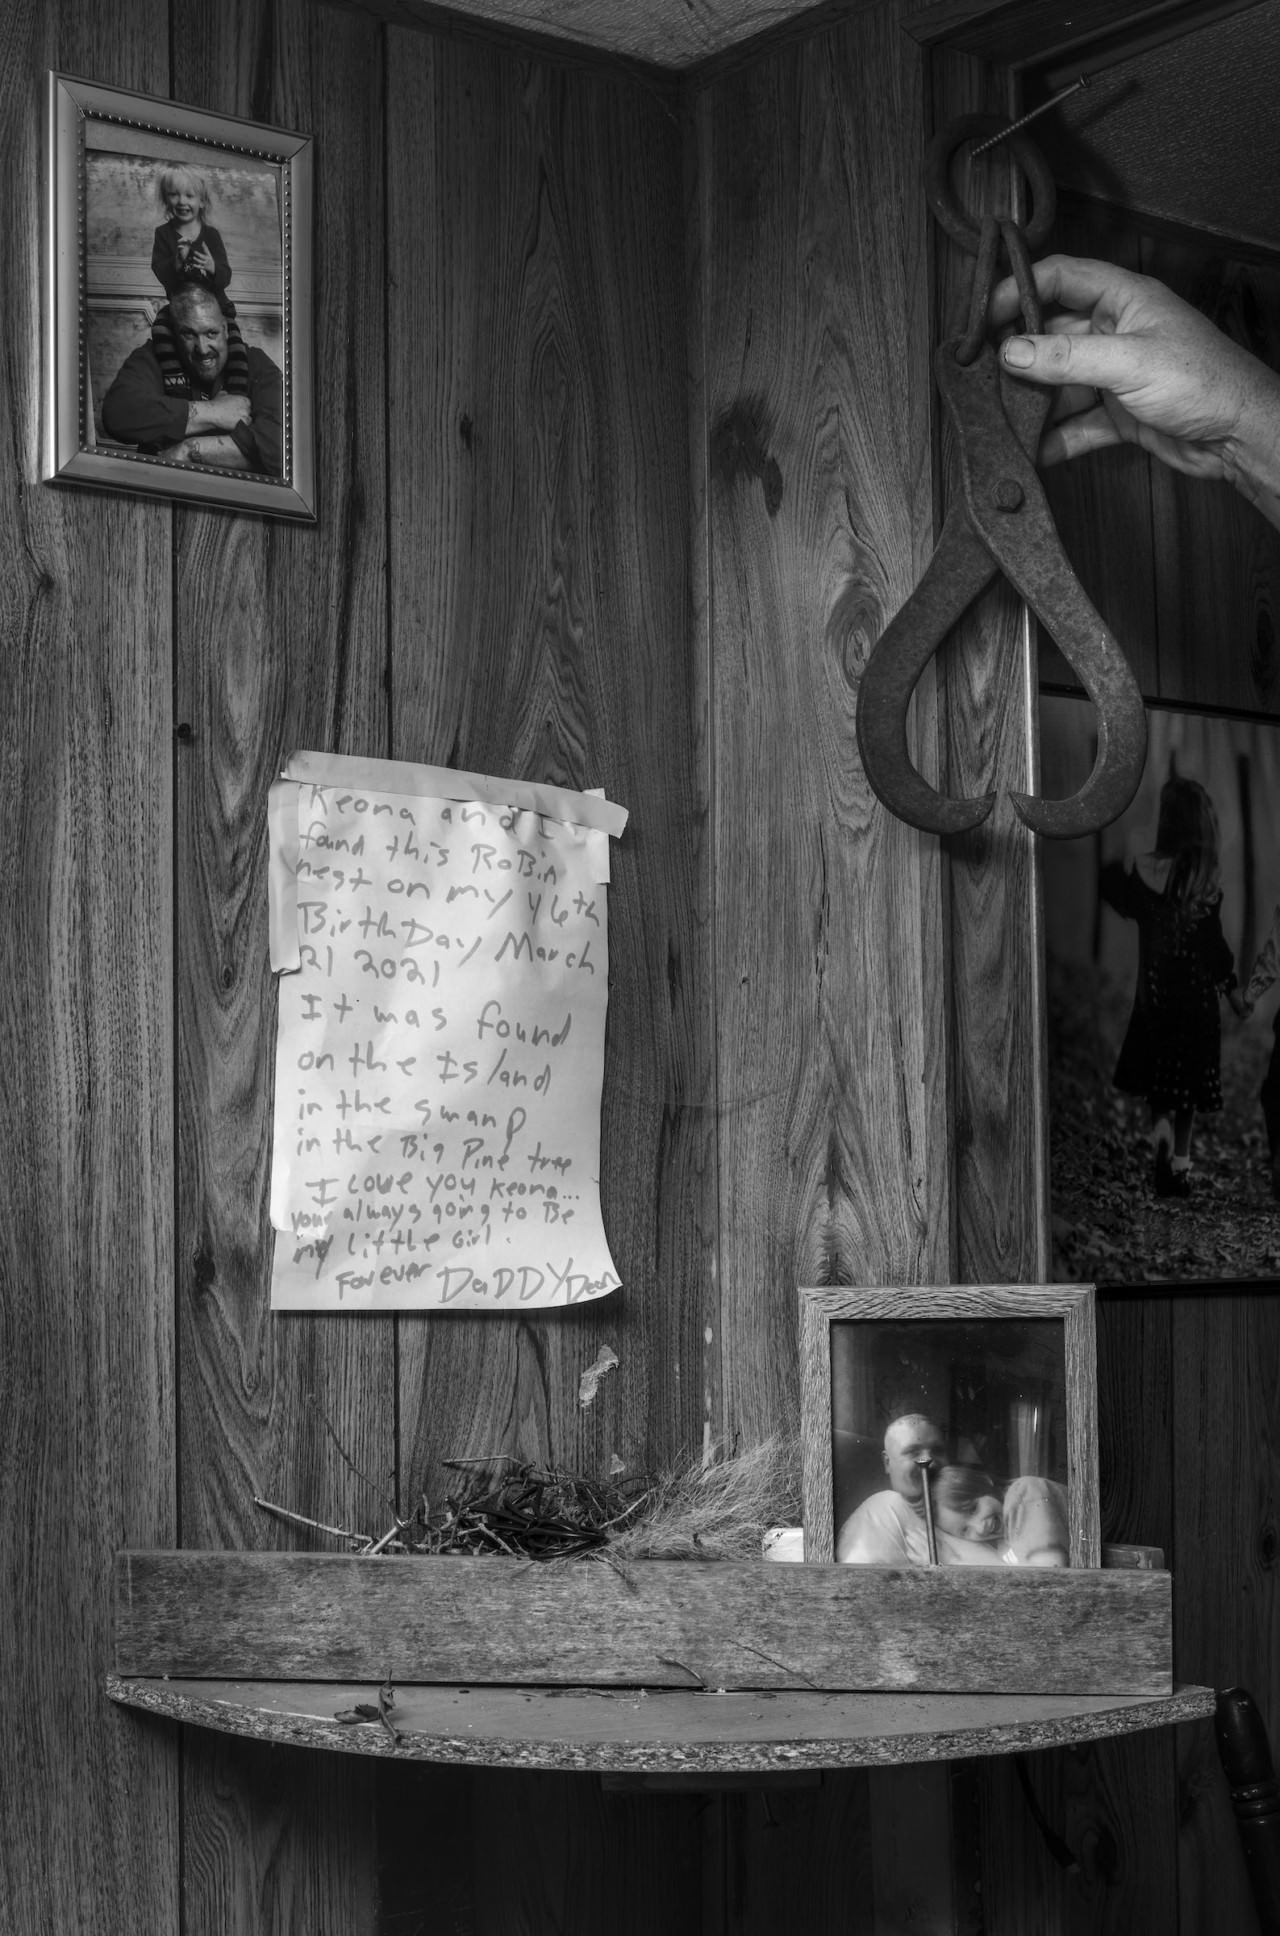 Keona and I
found this RoBin
nest on my 46th
BirthDay March
21 2021
It was found
on the Island
in the swamp
in the Big Pine tree
I love you Keona...
your always going to Be
my little Girl.
Forever DaDDY Dean